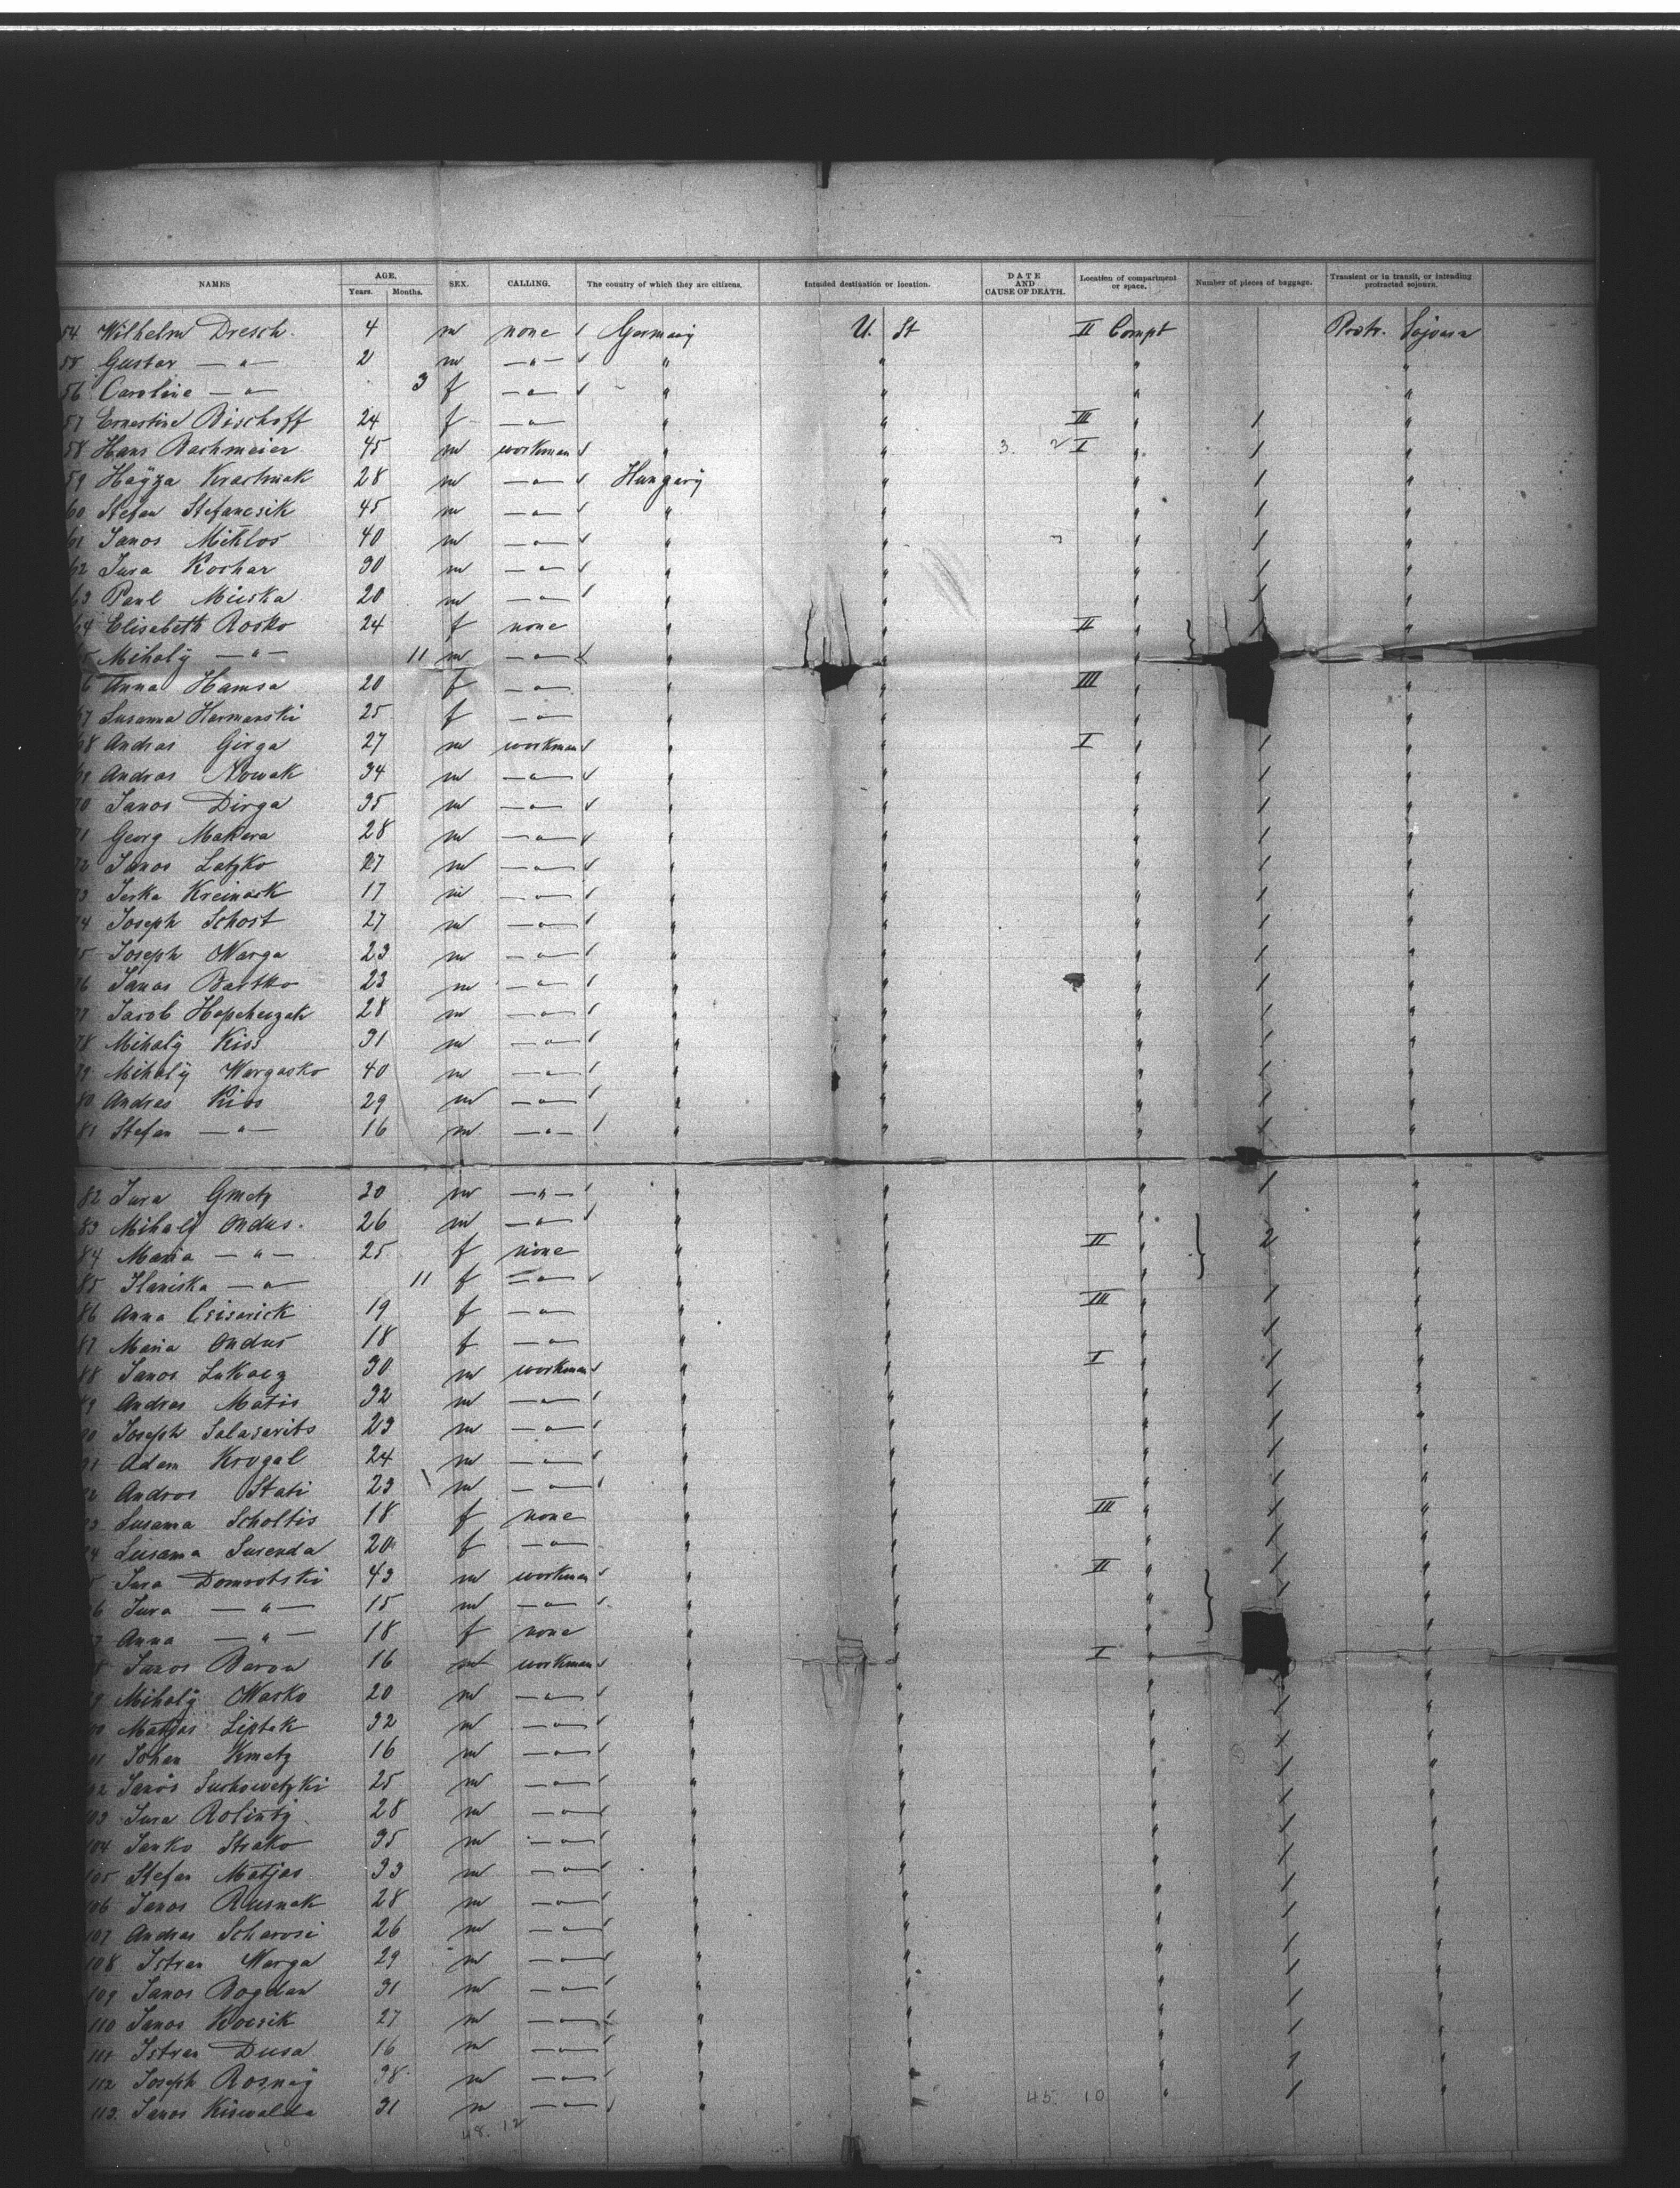 NAMES AGE. Years. Months. SEX. CALLING. The country of which they are citizens. Intended destination or location. DATE AND CAUSE OF DEATH. Location of compartment or space. Number of pieces of baggage. Transient or in transit, or intending protracted sojourn.
54 Wilhelm Dresch. 4 m none Germany U. St II Compt Protr. Sojourn
55 Gustav — " — 2 m — " — " " " "
56 Caroline — " — 3 f — " — " " " "
57 Ernestine Bischoff 24 f — " — " " III " 1 "
58 Hans Bachmeier 45 m workman " " 3. 2 I " 1 "
59 Kraslniak 28 m — " — Hungary " " 1 "
60 Stefan Stefancsik 45 m — " — " " " 1 "
61 Janos Miklos 40 m — " — " " " 1 "
62 Jura Kochar 30 m — " — " " " 1 "
63 Paul Miiska 20 m — " — " " " 1 "
64 Elisabeth Rosko 24 f none " " II " 1 "
5 Mihaly — " — 11 m — " — " " " "
6 Anna Hamsa 20 f — " — " " III " "
7 Susanna Harmanski 25 f — " — " " " "
68 Andras Girga 27 m workman " " I " 1 "
69 Andras Nowak 34 m — " — " " " 1 "
70 Janos Dirga 35 m — " — " " " 1 "
71 Georg Makara 28 m — " — " " " 1 "
72 Janos Latzko 27 m — " — " " " 1 "
73 Kreinack 17 m — " — " " " 1 "
74 Joseph Schost 27 m — " — " " " 1 "
75 Joseph Warga 23 m — " — " " " 1 "
76 Janos Bartko 23 m — " — " " " 1 "
77 Jacob 28 m — " — " " " 1 "
78 Mihaly Kiss 31 m — " — " " " 1 "
79 Mihaly Wargasko 40 m — " — " " " 1 "
80 Andras Kiss 29 m — " — " " " 1 "
81 Stefan — " — 16 m — " — " " " 1 "
82 Jura Gmetz 30 m — " — " " " 1 "
83 Mihaly Ondus. 26 m — " — " " " "
84 Maria — " — 25 f none " " II " 2 "
85 — " — 11 f — " — " " " "
86 Anna Csisarick 19 f — " — " " III " 1 "
87 Maria Ondus 18 f — " — " " " 1 "
88 Janos Lukacz 30 m workman " " I " 1 "
89 Andras Matis 32 m — " — " " " 1 "
90 Joseph Salasarits 23 m — " — " " " 1 "
91 Adam Krogal 24 m — " — " " " 1 "
92 Andros Stati 23 m — " — " " " 1 "
93 Susama Scholtis 18 f none " " III " 1 "
94 Susama Surenda 20 f — " — " " " 1 "
5 Jura Domrotski 43 m workman " " II " 1 "
6 Jura — " — 15 m — " — " " " 1 "
7 Anna — " — 18 f none " " " "
8 Janos Baron 16 m workman " " I " "
9 Mihaly Wasko 20 m — " — " " " 1 "
Matjas Liptak 32 m — " — " " " 1 "
Johan Kmetz 16 m — " — " " " 1 "
102 Janos Suchowetzki 25 m — " — " " " 1 "
103 Jura Rolinty 28 m — " — " " " 1 "
104 Janko Strako 35 m — " — " " " 1 "
105 Stefan Matjas 33 m — " — " " " 1 "
106 Janos Rusnak 28 m — " — " " " 1 "
107 Andras Scharosi 26 m — " — " " " 1 "
108 Istvan Warga 29 m — " — " " " 1 "
109 Janos Bogdan 31 m — " — " " " 1 "
110 Janos Kocsik 27 m — " — " " " 1 "
111 Istvan Dusa 16 m — " — " " " 1 "
112 Joseph Rosnay 38 m — " — " " " 1 "
113. Janos Kiswalda 31 m — " — " " 45. 10 " 1 "
48. 12